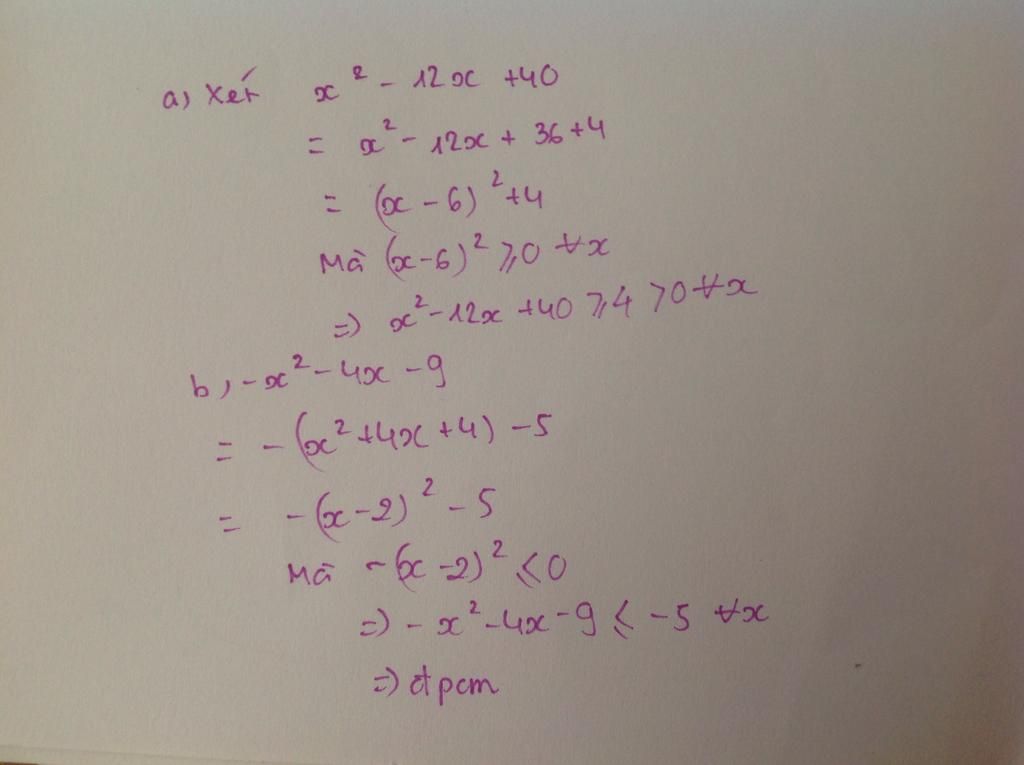 a, Xét x² - 12x + 40
= x² - 12x + 36 + 4
= (x - 6)² + 4
Mà (x - 6)² ⩾ 0 ∀x
=> x² - 12x + 40 ⩾ 4 > 0 ∀x
b, -x² - 4x - 9
= -(x² + 4x + 4) - 5
= -(x - 2)² - 5
Mà -(x - 2)² ⩽ 0
=> -x² - 4x - 9 ⩽ -5 ∀x
=> đpcm